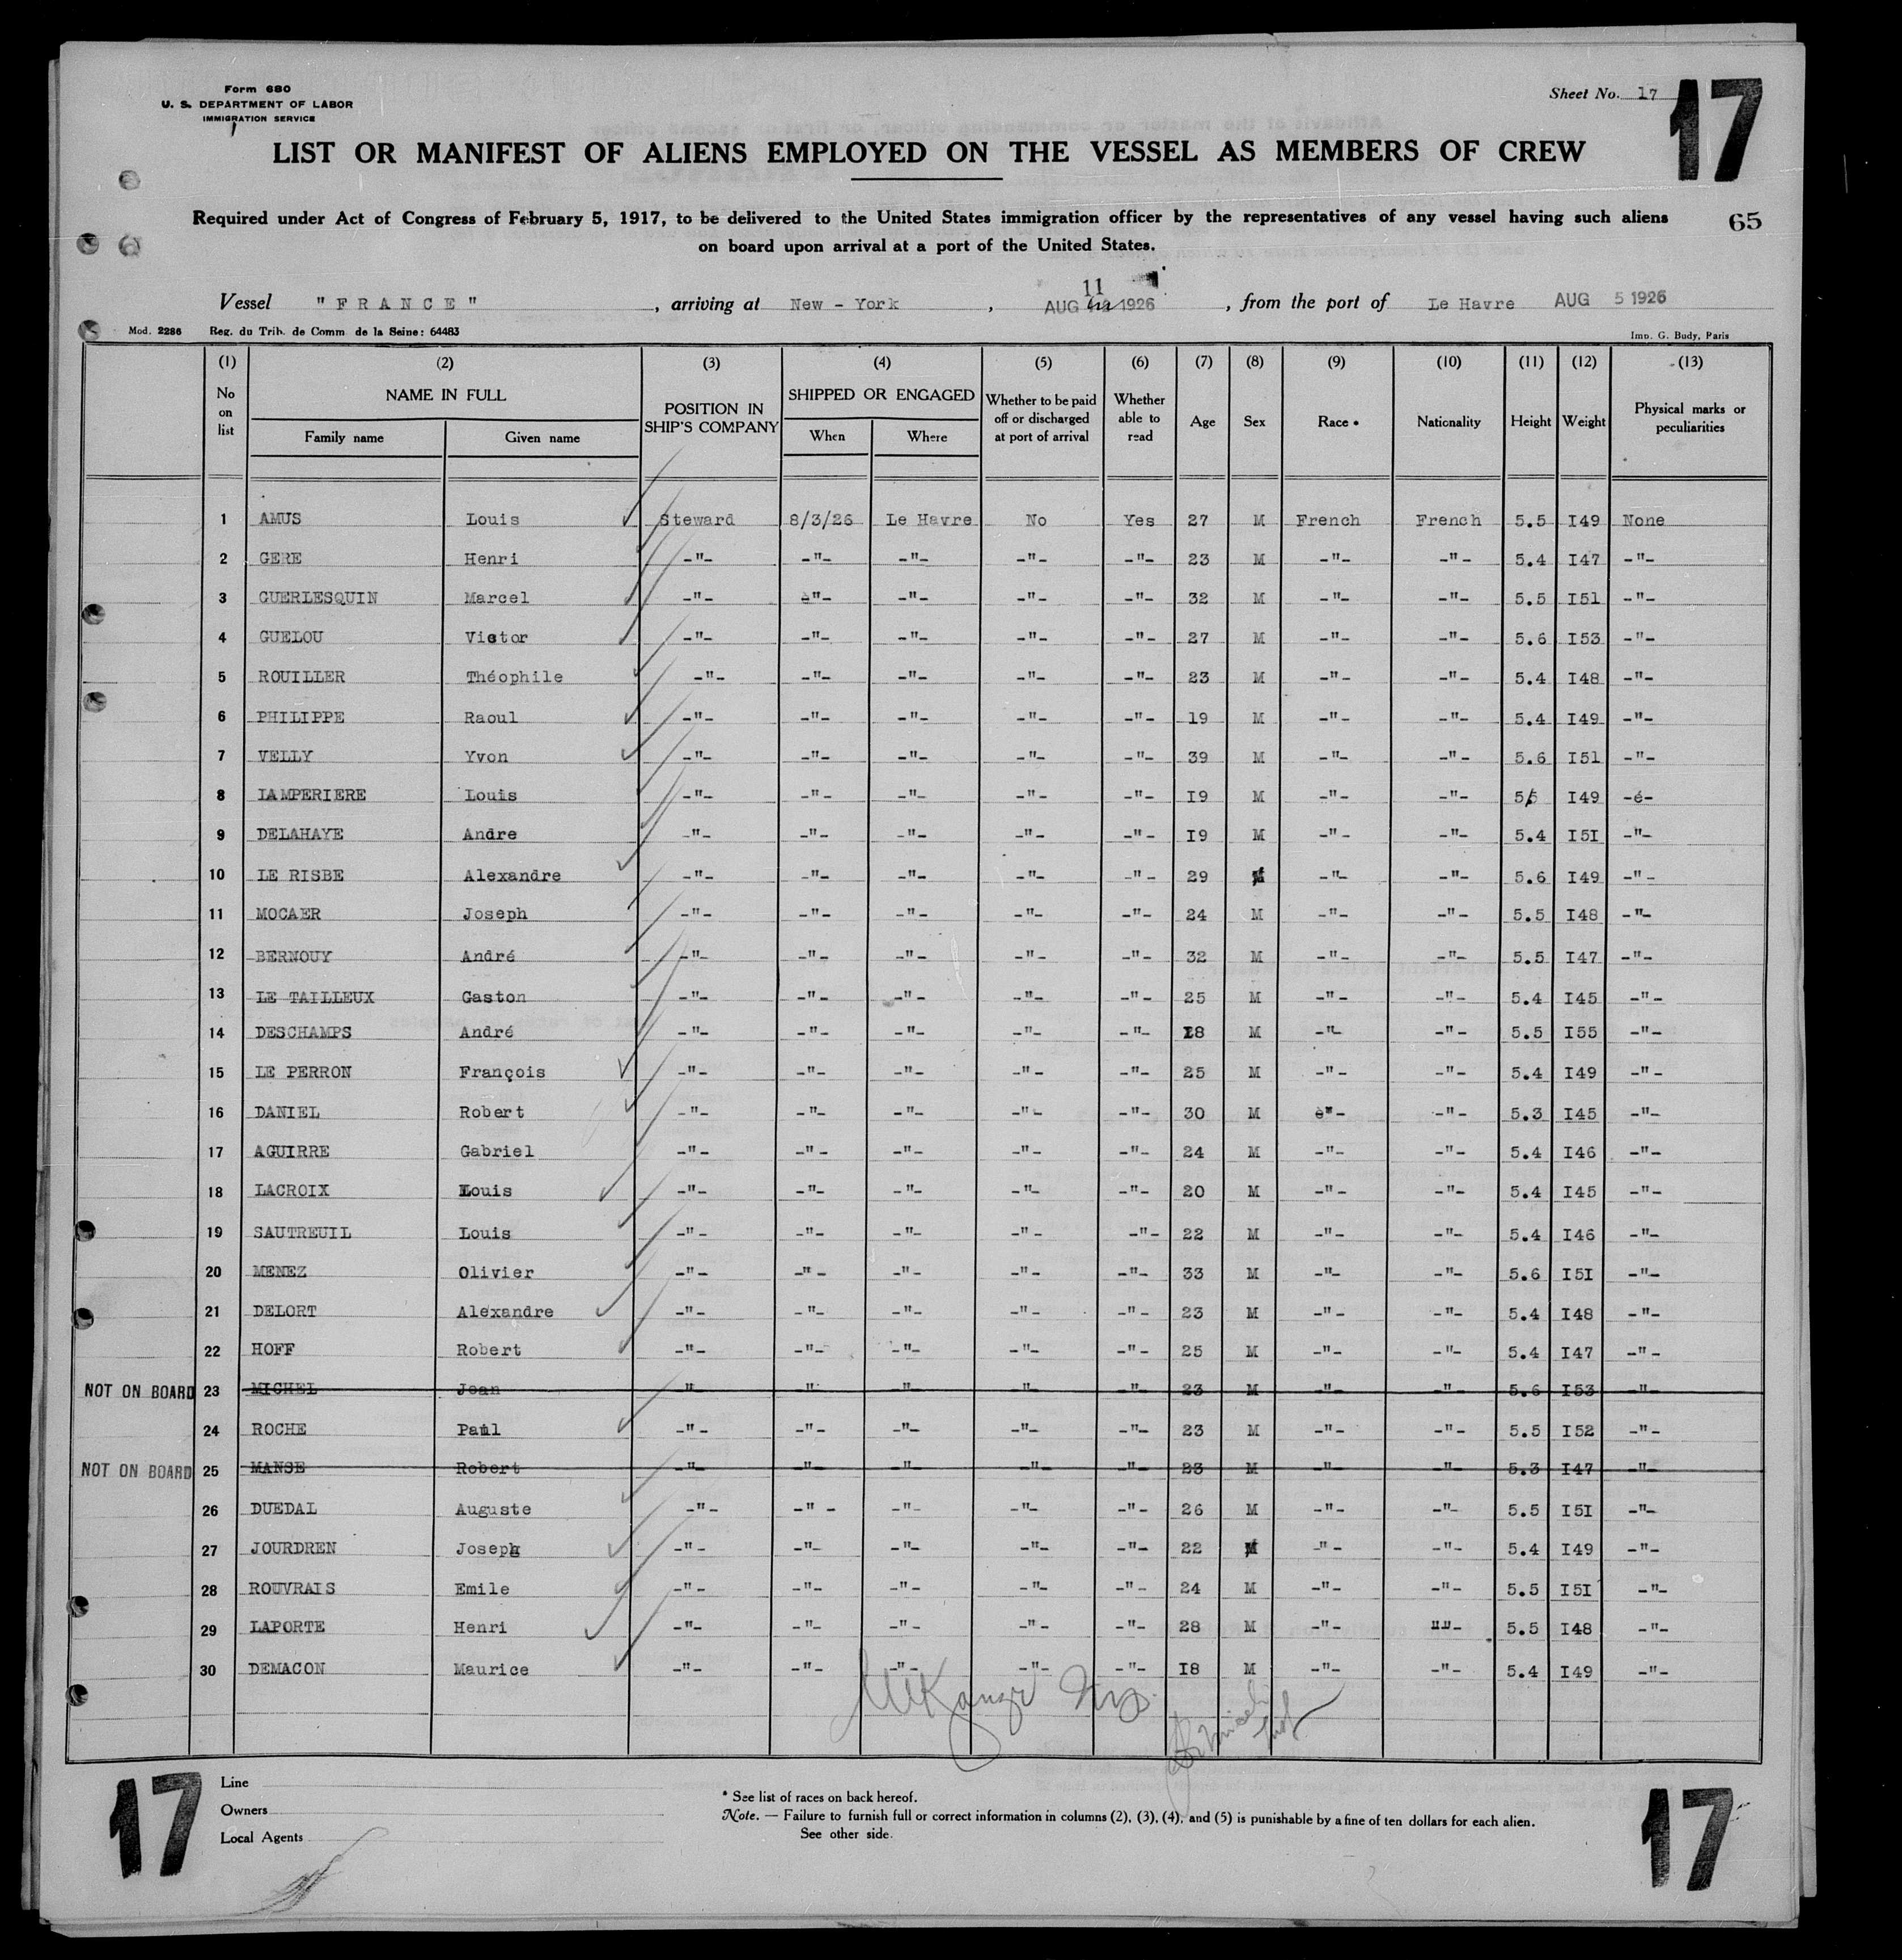 Form 680
U. S. DEPARTMENT OF LABOR
IMMIGRATION SERVICE
Sheet No. 17
17
LIST OR MANIFEST OF ALIENS EMPLOYED ON THE VESSEL AS MEMBERS OF CREW
Required under Act of Congress of February 5, 1917, to be delivered to the United States immigration officer by the representatives of any vessel having such aliens
on board upon arrival at a port of the United States.
65
Vessel "FRANCE", arriving at New-York, AUG 11 1926, from the port of Le Havre AUG 5 1926
Mod. 2286 Reg. du Trib. de Comm. de la Seine: 64483
Imp. G. Budy, Paris
(1) (2) (3) (4) (5) (6) (7) (8) (9) (10) (11) (12) (13)
No on list NAME IN FULL Family name Given name POSITION IN SHIP'S COMPANY SHIPPED OR ENGAGED When Where Whether to be paid off or discharged at port of arrival Whether able to read Age Sex Race • Nationality Height Weight Physical marks or peculiarities
1 AMUS Louis Steward 8/3/26 Le Havre No Yes 27 M French French 5.5 I49 None
2 GERE Henri -"- -"- -"- -"- -"- 23 M -"- -"- 5.4 I47 -"-
3 GUERLESQUIN Marcel -"- -"- -"- -"- -"- 32 M -"- -"- 5.5 I51 -"-
4 GUELOU Victor -"- -"- -"- -"- -"- 27 M -"- -"- 5.6 I53 -"-
5 ROUILLER Théophile -"- -"- -"- -"- -"- 23 M -"- -"- 5.4 I48 -"-
6 PHILIPPE Raoul -"- -"- -"- -"- -"- 19 M -"- -"- 5.4 I49 -"-
7 VELLY Yvon -"- -"- -"- -"- -"- 39 M -"- -"- 5.6 I51 -"-
8 LAMPERIERE Louis -"- -"- -"- -"- -"- I9 M -"- -"- 5.5 I49 -é-
9 DELAHAYE Andre -"- -"- -"- -"- -"- I9 M -"- -"- 5.4 I5I -"-
10 LE RISBE Alexandre -"- -"- -"- -"- -"- 29 M -"- -"- 5.6 I49 -"-
11 MOCAER Joseph -"- -"- -"- -"- -"- 24 M -"- -"- 5.5 I48 -"-
12 BERNOUY André -"- -"- -"- -"- -"- 32 M -"- -"- 5.5 I47 -"-
13 LE TAILLEUX Gaston -"- -"- -"- -"- -"- 25 M -"- -"- 5.4 I45 -"-
14 DESCHAMPS André -"- -"- -"- -"- -"- 18 M -"- -"- 5.5 I55 -"-
15 LE PERRON François -"- -"- -"- -"- -"- 25 M -"- -"- 5.4 I49 -"-
16 DANIEL Robert -"- -"- -"- -"- -"- 30 M -"- -"- 5.3 I45 -"-
17 AGUIRRE Gabriel -"- -"- -"- -"- -"- 24 M -"- -"- 5.4 I46 -"-
18 LACROIX Louis -"- -"- -"- -"- -"- 20 M -"- -"- 5.4 I45 -"-
19 SAUTREUIL Louis -"- -"- -"- -"- -"- 22 M -"- -"- 5.4 I46 -"-
20 MENEZ Olivier -"- -"- -"- -"- -"- 33 M -"- -"- 5.6 I5I -"-
21 DELORT Alexandre -"- -"- -"- -"- -"- 23 M -"- -"- 5.4 I48 -"-
22 HOFF Robert -"- -"- -"- -"- -"- 25 M -"- -"- 5.4 I47 -"-
NOT ON BOARD 23 MICHEL Jean -"- -"- -"- -"- -"- 23 M -"- -"- 5.6 I53 -"-
24 ROCHE Paul -"- -"- -"- -"- -"- 23 M -"- -"- 5.5 I52 -"-
NOT ON BOARD 25 MANSE Robert -"- -"- -"- -"- -"- 23 M -"- -"- 5.3 I47 -"-
26 DUEDAL Auguste -"- -"- -"- -"- -"- 26 M -"- -"- 5.5 I5I -"-
27 JOURDREN Joseph -"- -"- -"- -"- -"- 22 M -"- -"- 5.4 I49 -"-
28 ROUVRAIS Emile -"- -"- -"- -"- -"- 24 M -"- -"- 5.5 I5I -"-
29 LAPORTE Henri -"- -"- -"- -"- -"- 28 M -"- ""- 5.5 I48 -"-
30 DEMACON Maurice -"- -"- -"- -"- -"- I8 M -"- -"- 5.4 I49 -"-
17
Line
Owners
Local Agents
* See list of races on back hereof.
Note. — Failure to furnish full or correct information in columns (2), (3), (4), and (5) is punishable by a fine of ten dollars for each alien.
See other side.
17